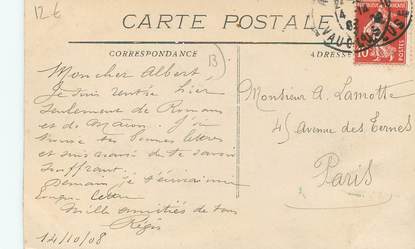 12€
CARTE POSTALE
VAUCLUSE
CORRESPONDANCE
ADRESSE
B
Mon cher Albert,
Je suis rentré hier
seulement de Romans
et de Macon. J'ai
trouvé tes bonnes lettres
et suis navré de te savoir
souffrant.
Demain je t'écrirai une
longue lettre
Mille amitiés de tous
Régis
14/10/08
Monsieur A. Lamotte
45 avenue des Ternes
Paris